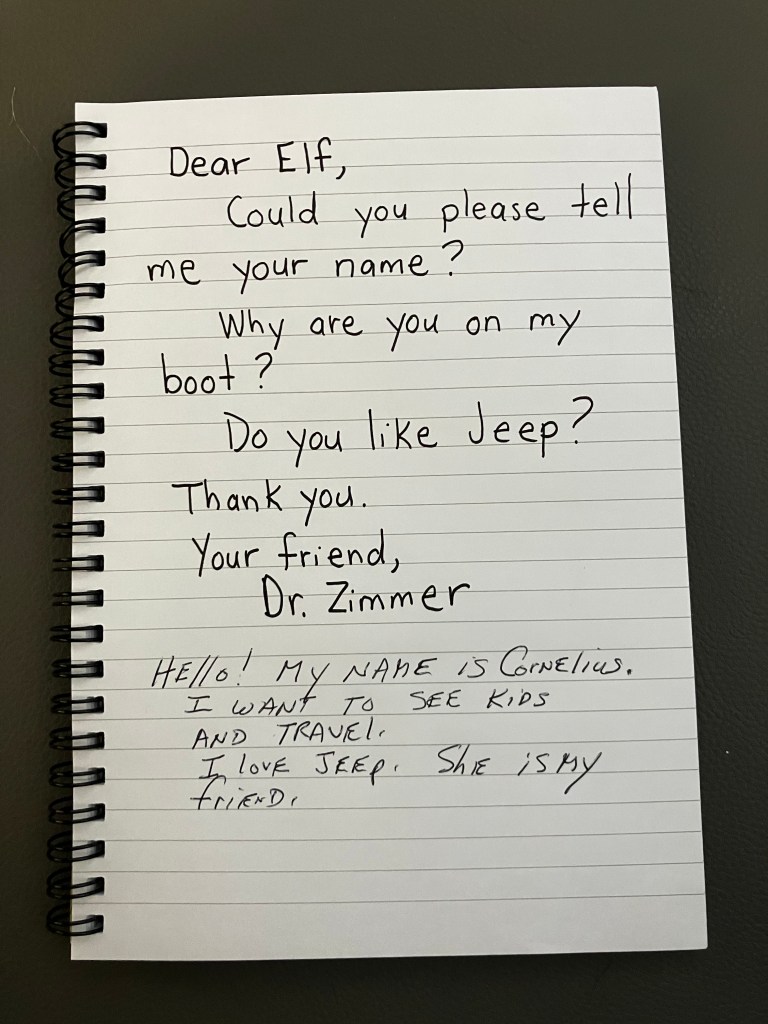 Dear Elf,
Could you please tell
me your name?
Why are you on my
boot?
Do you like Jeep?
Thank you.
Your friend,
Dr. Zimmer
HEllo! MY NAME is CorNElius.
I WANT TO SEE KiDS
AND TRAVEl.
I lovE JEEp. SHE iS MY
friEND.